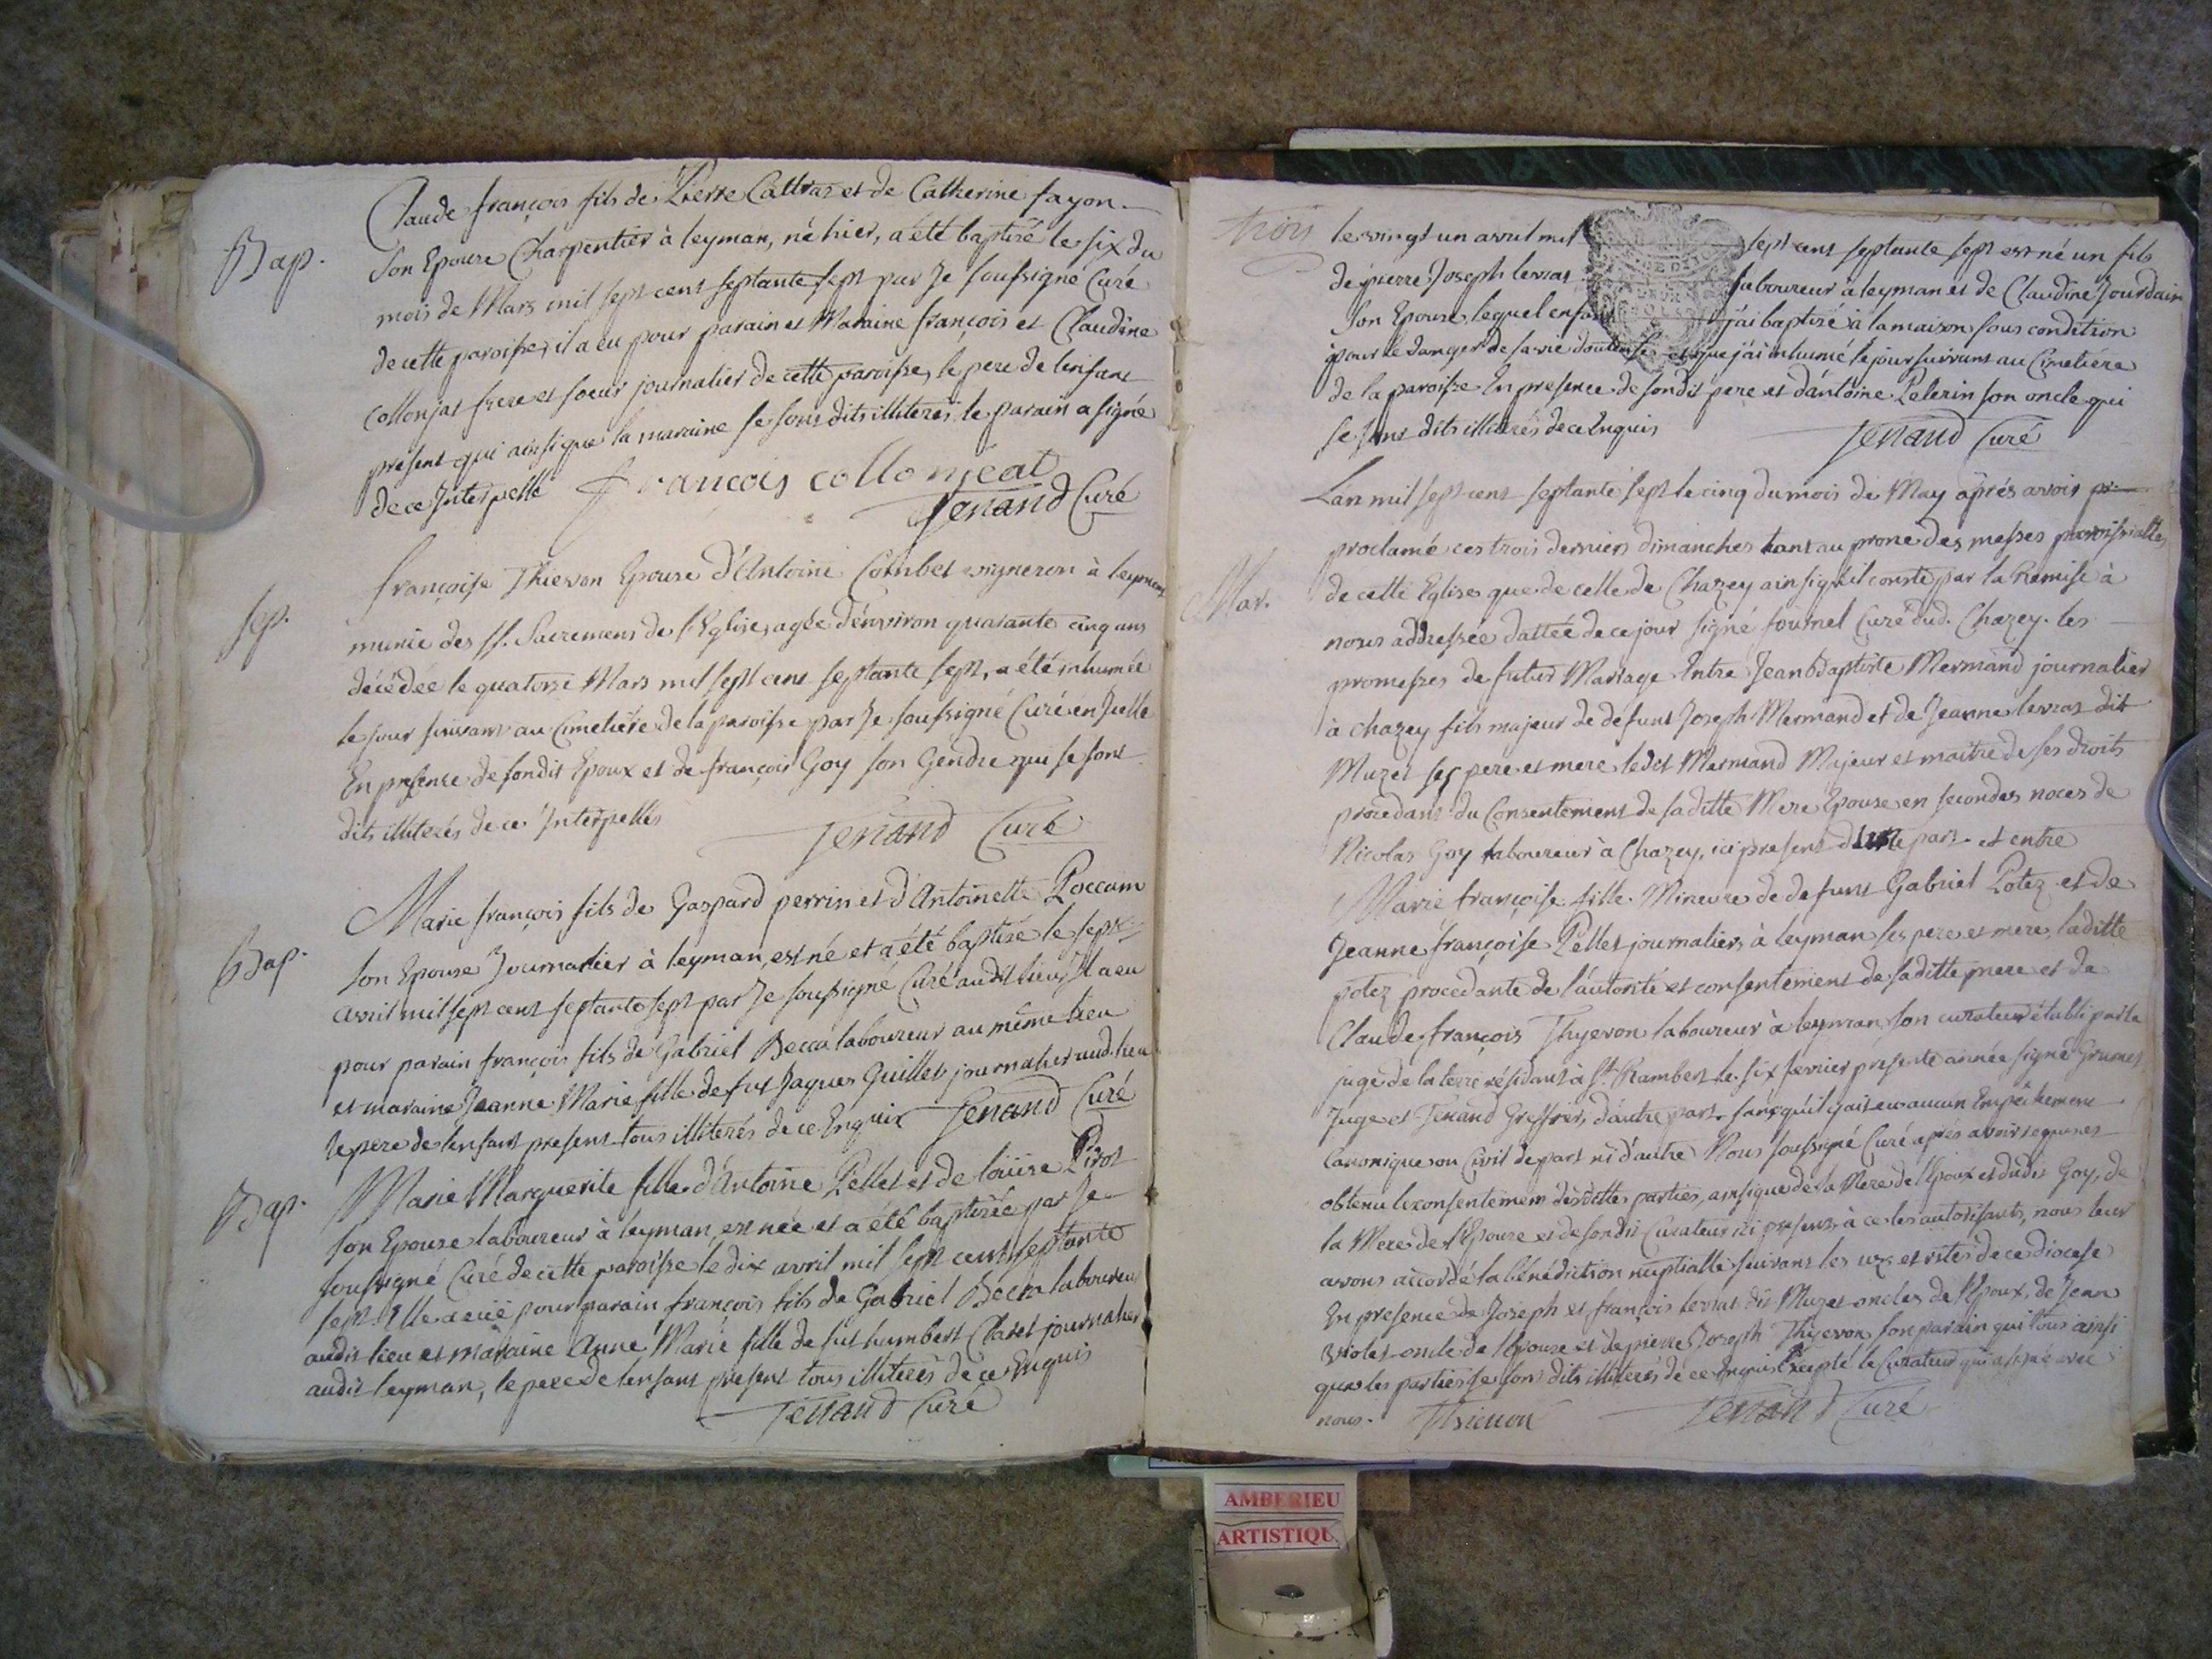 Claude françois fils de Pierre Cattras et de Catherine fayon
Bap.
son Epouse Charpentier à leyman, né hier, a été baptisé le six du
mois de Mars mil sept cent septante sept par Je soussigné Curé
de cette paroisse, il a eu pour parain et Maraine françois et Claudine
Collonjat frere et soeur journalier de cette paroisse, le pere de lenfant
present qui ainsi que la maraine se sont dits illiterés, le parain a signé
de ce Interpellé françois collonjeat
Jenand Curé
françoise Thievon Epouse d'Antoine Combet vigneron à leyment
Sep.
munie des SS. Sacremens de l'Eglise, agée d'environ quarante cinq ans
décédée le quatorze Mars mil sept cent septante sept, a été inhumée
le jour suivant au Cimetière de la paroisse par Je soussigné Curé en Icelle
En presence de sondit Epoux et de françois Goy son Gendre qui se sont
dits illiterés de ce Interpellés Jenand Curé
Marie françois fils de Gaspard perrin et d'Antoinette Poccam
Bap.
son Epouse Journalier à leyman, est né et a été baptisé le sept
avril mil sept cent septante sept par Je soussigné Curé audit lieu, Il a eu
pour parain françois fils de Gabriel Becca laboureur au même lieu
et maraine Jeanne Marie fille de fut Jaques Guillet journalier aud. lieu
le pere de lenfant present tous illiterés de ce Enquis Jenand Curé
Bap.
Marie Marguerite fille d'Antoine Pellet et de loüise Pirot
son Epouse laboureur à leyman, est née et a été baptisée par Je
soussigné Curé de cette paroisse le dix avril mil sept cent septante
sept. Elle a eüe pour parain françois fils de Gabriel Becca laboureur
audit lieu et maraine Anne Marie fille de fut humbert Claret journalier
audit leyman, le pere de lenfant present tous illiterés de ce Enquis
Jenand Curé
trois
le vingt un avril mil sept cent septante sept est né un fils
de pierre Joseph levrat laboureur à leyman et de Claudine Jourdain
son Epouse, lequel enfant j'ai baptisé à la maison sous condition
pour le danger de sa vie douteuse et que j'ai inhumé le jour suivant au Cimetière
de la paroisse En presence de sondit pere et d'antoine Pelerin son oncle qui
se sont dits illiterés de ce Enquis Jenand Curé
Lan mil sept cent septante sept le cinq du mois de May après avoir pr
proclamé ces trois derniers dimanches tant au prone des messes paroissialles
Mar.
de cette Eglise que de celle de Chazey ainsi quil conste par la Remise à
nous addressée dattée de ce jour signé fournel Curé dud. Chazey. les
promesses de futur Mariage Entre Jean Baptiste Mermand journalier
à chazey fils majeur de defunt Joseph Mermand et de Jeanne levrat dit
Muzet ses pere et mere ledit Mermand Majeur et maitre de ses droits
procedant du Consentement de saditte Mere Epouse en secondes noces de
Nicolas Goy laboureur à Chazey, ici present d'une part. et entre
Marie françoise fille Mineure de defunt Gabriel Potez et de
Jeanne françoise Pellet journaliers à leyman ses pere et mere, laditte
potez procedante de l'autorité et consentement de saditte mere et de
Claude françois Thyevon laboureur à leyman, son curateur établi par le
juge de la terre résidant à St. Rambert le six fevrier presente année signé Grumet
Juge et Jenand Greffier, d'autre part. sans quil y ait eu aucun Empêchement
Canonique ou Civil de part ni d'autre Nous soussigné Curé après avoir requis et
obtenu le consentement desdittes parties, ainsi que de la Mere de l'Epoux et dudit Goy, de
la Mere de l'Epouse et de sondit Curateur ici presents à ce les autorisants, nous leur
avons accordé la bénédiction nuptialle suivant les uzs et rites de ce diocese
En presence de Joseph et françois levrat dit Muzet oncles de l'Epoux, de Jean
Violet oncle de l'Epouse et de pierre Joseph Thyevon son parain qui tous ainsi
que les parties se sont dits illiterés de ce Enquis Excepté le Curateur qui a signé avec
nous. Thievon Jenand Curé
AMBERIEU
ARTISTIQU